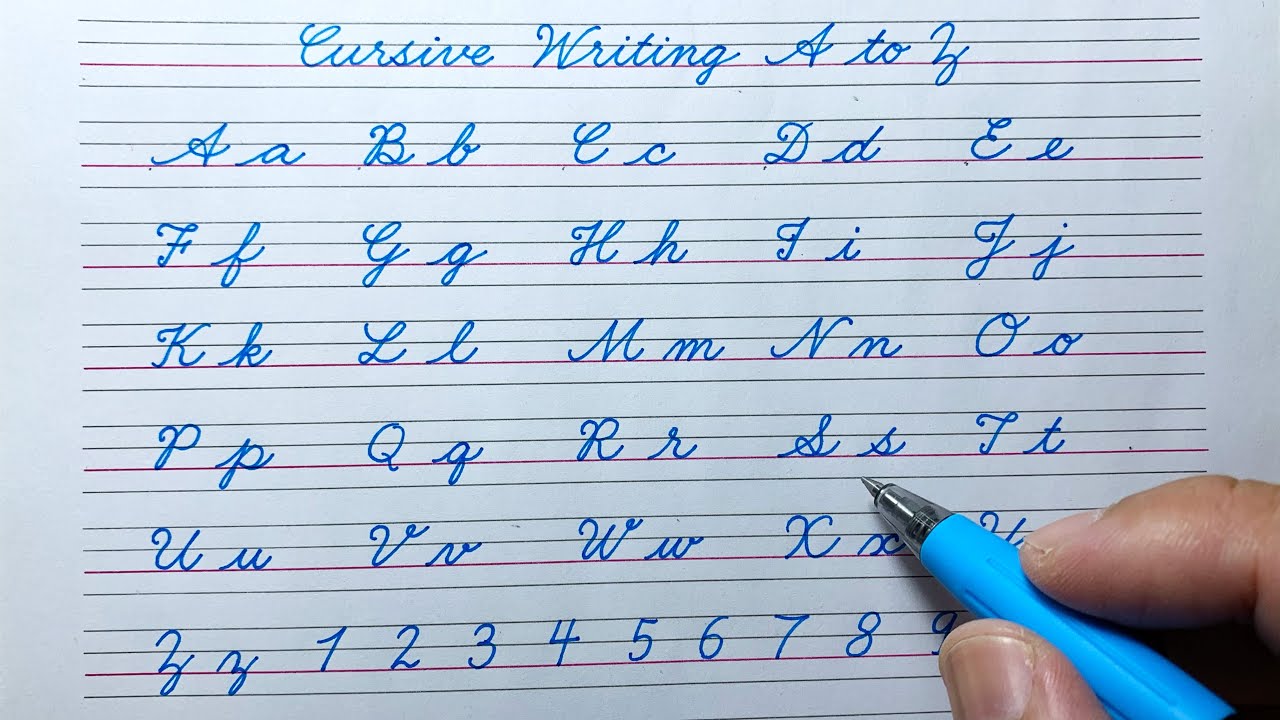 Cursive Writing A to Z
A a B b C c D d E e
F f G g H h I i J j
K k L l M m N n O o
P p Q q R r S s T t
U u V v W w X x Y
Z z 1 2 3 4 5 6 7 8 9